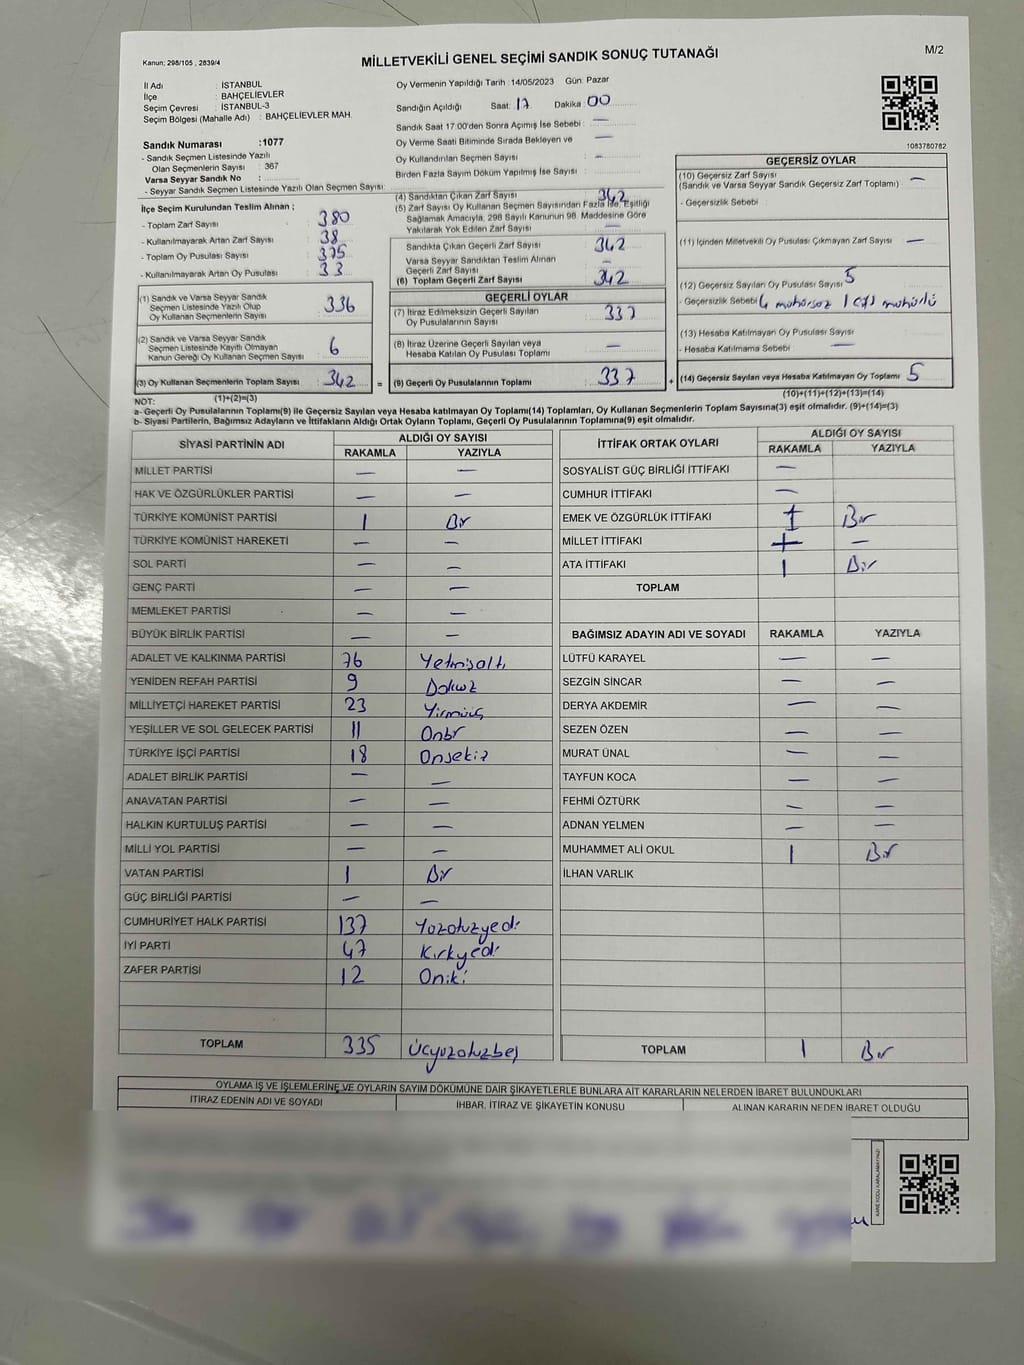 Kanun; 298/105 , 2839/4
MİLLETVEKİLİ GENEL SEÇİMİ SANDIK SONUÇ TUTANAĞI
M/2
İl Adı : İSTANBUL
İlçe : BAHÇELİEVLER
Seçim Çevresi : İSTANBUL-3
Seçim Bölgesi (Mahalle Adı) : BAHÇELİEVLER MAH.
Oy Vermenin Yapıldığı Tarih :14/05/2023 Gün: Pazar
Sandığın Açıldığı Saat: 17 Dakika: 00
Sandık Saat 17:00'den Sonra Açımış İse Sebebi : —
Oy Verme Saati Bitiminde Sırada Bekleyen ve
Oy Kullandırılan Seçmen Sayısı : —
Birden Fazla Sayım Döküm Yapılmış İse Sayısı : —
1083780782
Sandık Numarası :1077
- Sandık Seçmen Listesinde Yazılı
Olan Seçmenlerin Sayısı : 367
Varsa Seyyar Sandık No :
- Seyyar Sandık Seçmen Listesinde Yazılı Olan Seçmen Sayısı:
İlçe Seçim Kurulundan Teslim Alınan ;
- Toplam Zarf Sayısı 380
- Kullanılmayarak Artan Zarf Sayısı 38
- Toplam Oy Pusulası Sayısı 375
- Kullanılmayarak Artan Oy Pusulası 33
(1) Sandık ve Varsa Seyyar Sandık
Seçmen Listesinde Yazılı Olup
Oy Kullanan Seçmenlerin Sayısı 336
(2) Sandık ve Varsa Seyyar Sandık
Seçmen Listesinde Kayıtlı Olmayan
Kanun Gereği Oy Kullanan Seçmen Sayısı 6
(3) Oy Kullanan Seçmenlerin Toplam Sayısı 342 =
(1)+(2)=(3)
(4) Sandıktan Çıkan Zarf Sayısı 342
(5) Zarf Sayısı Oy Kullanan Seçmen Sayısından Fazla İse, Eşitliği
Sağlamak Amacıyla, 298 Sayılı Kanunun 98. Maddesine Göre
Yakılarak Yok Edilen Zarf Sayısı —
Sandıkta Çıkan Geçerli Zarf Sayısı 342
Varsa Seyyar Sandıktan Teslim Alınan
Geçerli Zarf Sayısı —
(6) Toplam Geçerli Zarf Sayısı 342
GEÇERLİ OYLAR
(7) İtiraz Edilmeksizin Geçerli Sayılan
Oy Pusulalarının Sayısı 337
(8) İtiraz Üzerine Geçerli Sayılan veya
Hesaba Katılan Oy Pusulası Toplamı —
(9) Geçerli Oy Pusulalarının Toplamı 337 +
GEÇERSİZ OYLAR
(10) Geçersiz Zarf Sayısı
(Sandık ve Varsa Seyyar Sandık Geçersiz Zarf Toplamı) —
- Geçersizlik Sebebi :
(11) İçinden Milletvekili Oy Pusulası Çıkmayan Zarf Sayısı —
(12) Geçersiz Sayılan Oy Pusulası Sayısı 5
- Geçersizlik Sebebi 4 mühürsüz 1 mühürlü
(13) Hesaba Katılmayan Oy Pusulası Sayısı
- Hesaba Katılmama Sebebi : —
(14) Geçersiz Sayılan veya Hesaba Katılmayan Oy Toplamı 5
(10)+(11)+(12)+(13)=(14)
NOT:
a- Geçerli Oy Pusulalarının Toplamı(9) ile Geçersiz Sayılan veya Hesaba katılmayan Oy Toplamı(14) Toplamları, Oy Kullanan Seçmenlerin Toplam Sayısına(3) eşit olmalıdır. (9)+(14)=(3)
b- Siyasi Partilerin, Bağımsız Adayların ve İttifakların Aldığı Ortak Oyların Toplamı, Geçerli Oy Pusulalarının Toplamına(9) eşit olmalıdır.
SİYASİ PARTİNİN ADI ALDIĞI OY SAYISI
RAKAMLA YAZIYLA
MİLLET PARTİSİ — —
HAK VE ÖZGÜRLÜKLER PARTİSİ — —
TÜRKİYE KOMÜNİST PARTİSİ 1 Bir
TÜRKİYE KOMÜNİST HAREKETİ — —
SOL PARTİ — —
GENÇ PARTİ — —
MEMLEKET PARTİSİ — —
BÜYÜK BİRLİK PARTİSİ — —
ADALET VE KALKINMA PARTİSİ 76 Yetmişaltı
YENİDEN REFAH PARTİSİ 9 Dokuz
MİLLİYETÇİ HAREKET PARTİSİ 23 Yirmiüç
YEŞİLLER VE SOL GELECEK PARTİSİ 11 Onbir
TÜRKİYE İŞÇİ PARTİSİ 18 Onsekiz
ADALET BİRLİK PARTİSİ — —
ANAVATAN PARTİSİ — —
HALKIN KURTULUŞ PARTİSİ — —
MİLLİ YOL PARTİSİ — —
VATAN PARTİSİ 1 Bir
GÜÇ BİRLİĞİ PARTİSİ — —
CUMHURİYET HALK PARTİSİ 137 Yüzotuzyedi
İYİ PARTİ 47 Kırkyedi
ZAFER PARTİSİ 12 Oniki
TOPLAM 335 Üçyüzotuzbeş
İTTİFAK ORTAK OYLARI ALDIĞI OY SAYISI
RAKAMLA YAZIYLA
SOSYALİST GÜÇ BİRLİĞİ İTTİFAKI —
CUMHUR İTTİFAKI —
EMEK VE ÖZGÜRLÜK İTTİFAKI 1 Bir
MİLLET İTTİFAKI — —
ATA İTTİFAKI 1 Bir
TOPLAM
BAĞIMSIZ ADAYIN ADI VE SOYADI RAKAMLA YAZIYLA
LÜTFÜ KARAYEL — —
SEZGİN SİNCAR — —
DERYA AKDEMİR — —
SEZEN ÖZEN — —
MURAT ÜNAL — —
TAYFUN KOCA — —
FEHMİ ÖZTÜRK — —
ADNAN YELMEN — —
MUHAMMET ALİ OKUL 1 Bir
İLHAN VARLIK
TOPLAM 1 Bir
OYLAMA İŞ VE İŞLEMLERİNE VE OYLARIN SAYIM DÖKÜMÜNE DAİR ŞİKAYETLERLE BUNLARA AİT KARARLARIN NELERDEN İBARET BULUNDUKLARI
İTİRAZ EDENİN ADI VE SOYADI İHBAR, İTİRAZ VE ŞİKAYETİN KONUSU ALINAN KARARIN NEDEN İBARET OLDUĞU
KARE KODU KARALAMAYINIZ!